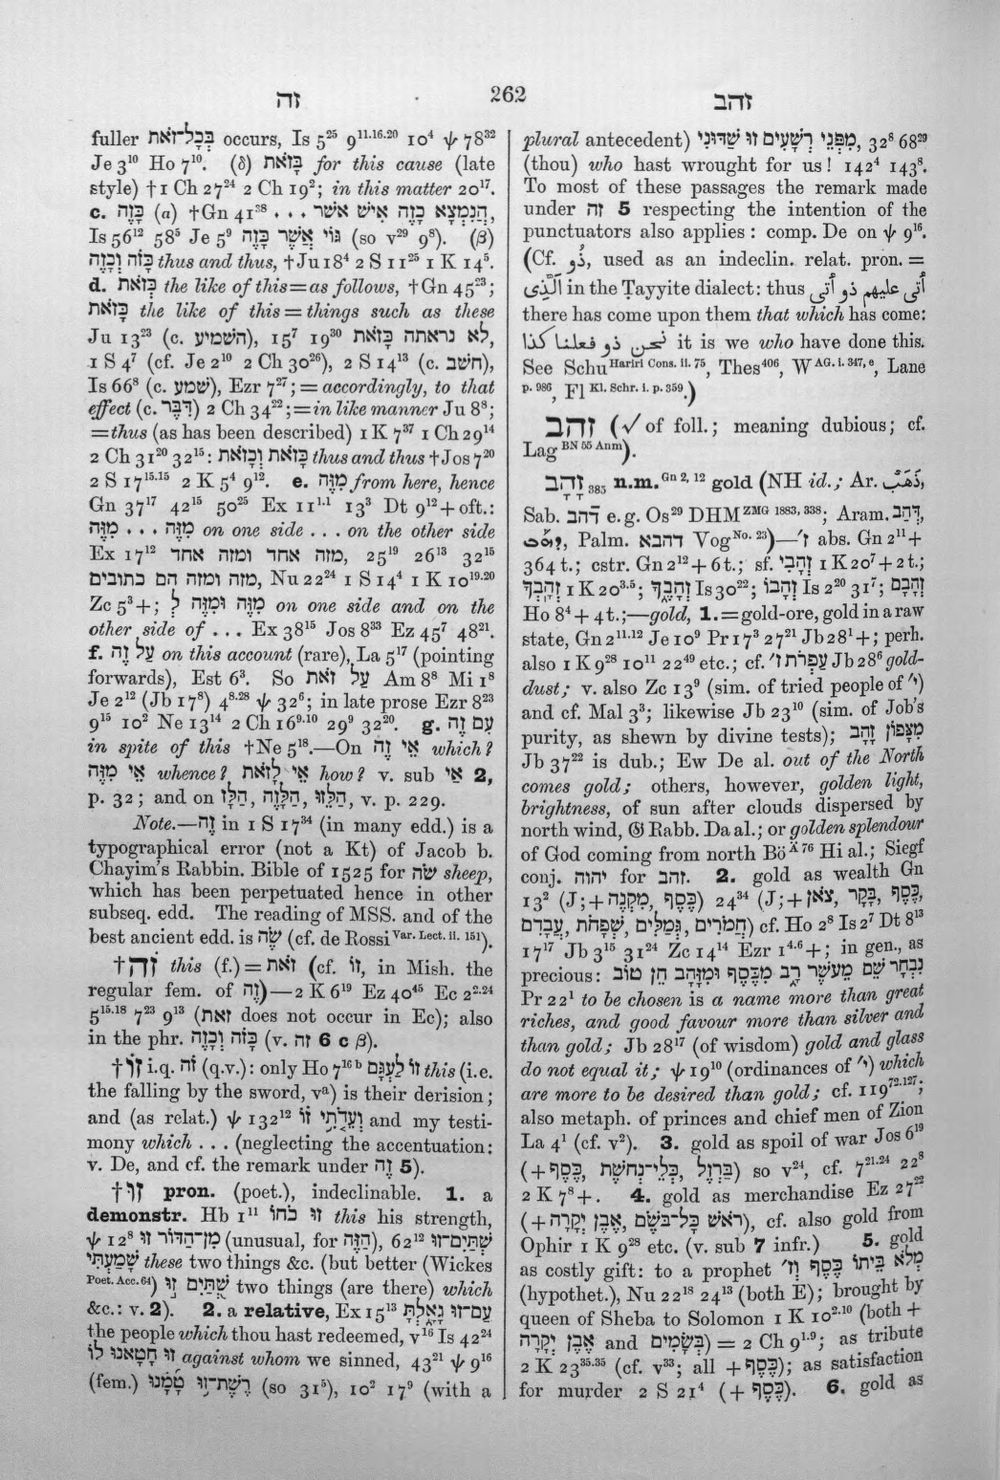 זה
262
זהב
fuller בְּכָל־זֹאת occurs, Is 5²⁵ 9¹¹·¹⁶·²⁰ 10⁴ ψ 78³²
Je 3¹⁰ Ho 7¹⁰. (δ) בְּזֹאת for this cause (late
style) †1 Ch 27²⁴ 2 Ch 19²; in this matter 20¹⁷.
c. כָּזֶה (α) †Gn 41³⁸ הֲנִמְצָא כָזֶה אִישׁ אשׁר . . . ,
Is 56¹² 58⁵ Je 5⁹ גּוֹי אֲשֶׁר כָּזֶה (so v²⁹ 9⁸). (β)
כָּזֹה וְכָזֶה thus and thus, †Ju 18⁴ 2 S 11²⁵ 1 K 14⁵.
d. כָּזֹאת the like of this = as follows, †Gn 45²³;
כָּזֹאת the like of this = things such as these
Ju 13²³ (c. השׁמיע), 15⁷ 19³⁰ לא נראתה כָּזֹאת,
1 S 4⁷ (cf. Je 2¹⁰ 2 Ch 30²⁶), 2 S 14¹³ (c. חשׁב),
Is 66⁸ (c. שׁמע), Ezr 7²⁷; = accordingly, to that
effect (c. דִּבֶּר) 2 Ch 34²²; = in like manner Ju 8⁸;
= thus (as has been described) 1 K 7³⁷ 1 Ch 29¹⁴
2 Ch 31²⁰ 32¹⁵: כָּזֹאת וְכָזֹאת thus and thus †Jos 7²⁰
2 S 17¹⁵·¹⁵ 2 K 5⁴ 9¹². e. מִזֶּה from here, hence
Gn 37¹⁷ 42¹⁵ 50²⁵ Ex 11¹·¹ 13³ Dt 9¹² + oft.:
מִזֶּה . . . מִזֶּה on one side . . . on the other side
Ex 17¹² מזה אחד ומזה אחד, 25¹⁹ 26¹³ 32¹⁵
מזה ומזה הם כתובים, Nu 22²⁴ 1 S 14⁴ 1 K 10¹⁹·²⁰
Zc 5³ +; מִזֶּה וּמִזֶּה לְ on one side and on the
other side of . . . Ex 38¹⁵ Jos 8³³ Ez 45⁷ 48²¹.
f. עַל זֶה on this account (rare), La 5¹⁷ (pointing
forwards), Est 6³. So עַל זֹאת Am 8⁸ Mi 1⁸
Je 2¹² (Jb 17⁸) 4⁸·²⁸ ψ 32⁶; in late prose Ezr 8²³
9¹⁵ 10² Ne 13¹⁴ 2 Ch 16⁹·¹⁰ 29⁹ 32²⁰. g. עִם זֶה
in spite of this †Ne 5¹⁸.—On אֵי זֶה which?
אֵי מִזֶּה whence? אֵי לָזֹאת how? v. sub אֵי 2,
p. 32; and on הַלָּז, הַלָּזֶה, הַלֵּזוּ, v. p. 229.
Note.—זֶה in 1 S 17³⁴ (in many edd.) is a
typographical error (not a Kt) of Jacob b.
Chayim's Rabbin. Bible of 1525 for שֶׂה sheep,
which has been perpetuated hence in other
subseq. edd. The reading of MSS. and of the
best ancient edd. is שֶׂה (cf. de Rossi Var. Lect. ii. 151).
†זֹה this (f.) = זֹאת (cf. זוֹ, in Mish. the
regular fem. of זֶה)—2 K 6¹⁹ Ez 40⁴⁵ Ec 2²·²⁴
5¹⁵·¹⁸ 7²³ 9¹³ (זֹאת does not occur in Ec); also
in the phr. כָּזֹה וְכָזֶה (v. זה 6 c β).
†זוֹ i.q. זֹה (q.v.): only Ho 7¹⁶ᵇ זוֹ לַעְגָּם this (i.e.
the falling by the sword, vᵃ) is their derision;
and (as relat.) ψ 132¹² וְעֵדֹתִי זוֹ and my testi-
mony which . . . (neglecting the accentuation:
v. De, and cf. the remark under זֶה 5).
†זוּ pron. (poet.), indeclinable. 1. a
demonstr. Hb 1¹¹ זוּ כֹחוֹ this his strength,
ψ 12⁸ מִן־הַדּוֹר זוּ (unusual, for הַזֶּה), 62¹² שְׁתַּיִם־זוּ
שָׁמָעְתִּי these two things &c. (but better (Wickes
Poet. Acc. 64) שְׁתַּיִם זוּ two things (are there) which
&c.: v. 2). 2. a relative, Ex 15¹³ עַם־זוּ גָּאָלְתָּ
the people which thou hast redeemed, v¹⁶ Is 42²⁴
זוּ חָטָאנוּ לוֹ against whom we sinned, 43²¹ ψ 9¹⁶
(fem.) רֶשֶׁת־זוּ טָמָנוּ (so 31⁵), 10² 17⁹ (with a
plural antecedent) מִפְּנֵי רְשָׁעִים זוּ שַׁדּוּנִי, 32⁸ 68²⁹
(thou) who hast wrought for us! 142⁴ 143⁸.
To most of these passages the remark made
under זה 5 respecting the intention of the
punctuators also applies: comp. De on ψ 9¹⁶.
(Cf. ذُو, used as an indeclin. relat. pron. =
اَلَّذِى in the Ṭayyite dialect: thus أتى عليهم ذو أتى
there has come upon them that which has come:
نحن ذو فعلنا كذا it is we who have done this.
See Schu Hariri Cons. ii. 75, Thes⁴⁰⁶, W AG. i. 347, e, Lane
p. 986, Fl Kl. Schr. i. p. 359.)
זהב (√ of foll.; meaning dubious; cf.
Lag BN 55 Anm).
זָהָב 385 n.m. Gn 2, 12 gold (NH id.; Ar. ذَهَبٌ,
Sab. דהב e.g. Os²⁹ DHM ZMG 1883, 338; Aram. דְּהַב,
Palm. דהבא Vog No. 23)—ז׳ abs. Gn 2¹¹ +
364 t.; cstr. Gn 2¹² + 6 t.; sf. זְהָבִי 1 K 20⁷ + 2 t.;
זְהָבְךָ 1 K 20³·⁵; זְהָבֶךָ Is 30²²; זְהָבוֹ Is 2²⁰ 31⁷; זְהָבָם
Ho 8⁴ + 4 t.;—gold, 1. = gold-ore, gold in a raw
state, Gn 2¹¹·¹² Je 10⁹ Pr 17³ 27²¹ Jb 28¹ +; perh.
also 1 K 9²⁸ 10¹¹ 22⁴⁹ etc.; cf. עַפְרֹת ז׳ Jb 28⁶ gold-
dust; v. also Zc 13⁹ (sim. of tried people of י׳)
and cf. Mal 3³; likewise Jb 23¹⁰ (sim. of Job's
purity, as shewn by divine tests); מִצָּפוֹן זָהָב
Jb 37²² is dub.; Ew De al. out of the North
comes gold; others, however, golden light,
brightness, of sun after clouds dispersed by
north wind, 𝔊 Rabb. Da al.; or golden splendour
of God coming from north Bö Ä 76 Hi al.; Siegf
conj. יהוה for זהב. 2. gold as wealth Gn
13² (J; + כֶּסֶף, מִקְנֶה) 24³⁴ (J; + כֶּסֶף, בָּקָר, צֹאן,
חֲמֹרִים, וּגְמַלִּים, שְׁפָחֹת, עֲבָדִם) cf. Ho 2⁸ Is 2⁷ Dt 8¹³
17¹⁷ Jb 3¹⁵ 31²⁴ Zc 14¹⁴ Ezr 1⁴·⁶ +; in gen., as
precious: נִבְחָר שֵׁם מֵעֹשֶׁר רָב מִכֶּסֶף וּמִזָּהָב חֵן טוֹב
Pr 22¹ to be chosen is a name more than great
riches, and good favour more than silver and
than gold; Jb 28¹⁷ (of wisdom) gold and glass
do not equal it; ψ 19¹⁰ (ordinances of י׳) which
are more to be desired than gold; cf. 119⁷²·¹²⁷;
also metaph. of princes and chief men of Zion
La 4¹ (cf. v²). 3. gold as spoil of war Jos 6¹⁹
(+ כֶּסֶף, כְּלֵי־נְחשֶׁת, בַּרְזֶל) so v²⁴, cf. 7²¹·²⁴ 22⁸
2 K 7⁸ +. 4. gold as merchandise Ez 27²²
(+ רֹאשׁ כָּל־בֹּשֶׂם, אֶבֶן יְקָרָה), cf. also gold from
Ophir 1 K 9²⁸ etc. (v. sub 7 infr.) 5. gold
as costly gift: to a prophet מְלֹא בֵיתוֹ כֶּסֶף וְז׳
(hypothet.), Nu 22¹⁸ 24¹³ (both E); brought by
queen of Sheba to Solomon 1 K 10²·¹⁰ (both +
אֶבֶן יְקָרָה and בְּשָׂמִים) = 2 Ch 9¹·⁹; as tribute
2 K 23³⁵·³⁵ (cf. v³³; all + כֶּסֶף); as satisfaction
for murder 2 S 21⁴ (+ כֶּסֶף). 6. gold as